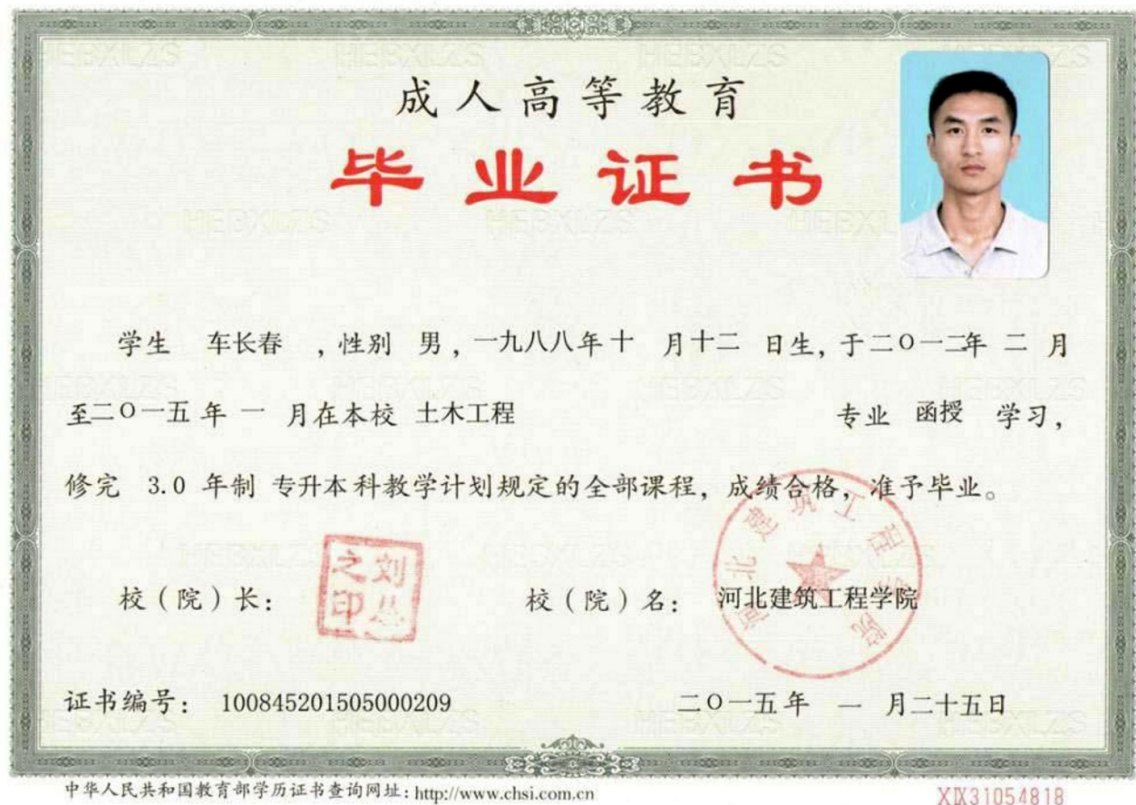 成人高等教育
毕业证书
学生 车长春 ，性别 男，一九八八年十 月十二 日生，于二〇一二年 二 月
至二〇一五年 一 月在本校 土木工程 专业 函授 学习，
修完 3.0 年制 专升本科教学计划规定的全部课程，成绩合格，准予毕业。
校（院）长： 刘丛之印
校（院）名： 河北建筑工程学院
河北建筑工程学院
证书编号： 100845201505000209
二〇一五年 一 月二十五日
中华人民共和国教育部学历证书查询网址：http://www.chsi.com.cn
XIX31054818
HEBXLZS